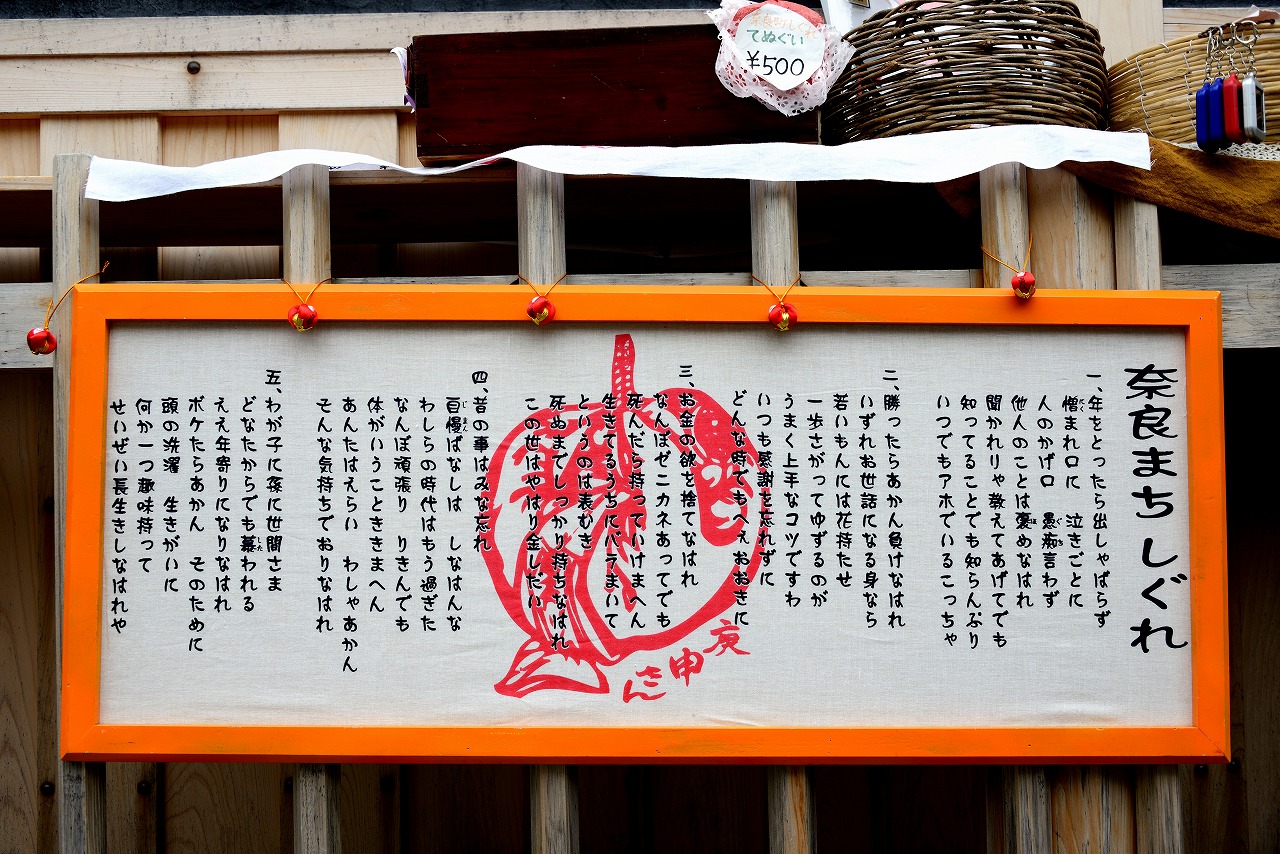 奈良町しぐれ
てぬぐい
¥500
奈良まちしぐれ
一、年をとったら出しゃばらず
憎まれ口に 泣きごとに
人のかげ口 愚痴言わず
他人のことは褒めなはれ
聞かれりゃ教えてあげてでも
知ってることでも知らんぷり
いつでもアホでいるこっちゃ
二、勝ったらあかん負けなはれ
いずれお世話になる身なら
若いもんには花持たせ
一歩さがってゆずるのが
うまく上手なコツですわ
いつも感謝を忘れずに
どんな時でもへぇおおきに
三、お金の欲を捨てなはれ
なんぼゼニカネあってでも
死んだら持っていけまへん
生きてるうちにバラまいて
というのは表むき
死ぬまでしっかり持ちなはれ
この世はやはり金しだい
四、昔の事はみな忘れ
自慢ばなしは しなはんな
わしらの時代はもう過ぎた
なんぼ頑張り りきんでも
体がいうことききまへん
あんたはえらい わしゃあかん
そんな気持ちでおりなはれ
五、わが子に孫に世間さま
どなたからでも慕われる
ええ年寄りになりなはれ
ボケたらあかん そのために
頭の洗濯 生きがいに
何か一つ趣味持って
せいぜい長生きしなはれや
庚申さん